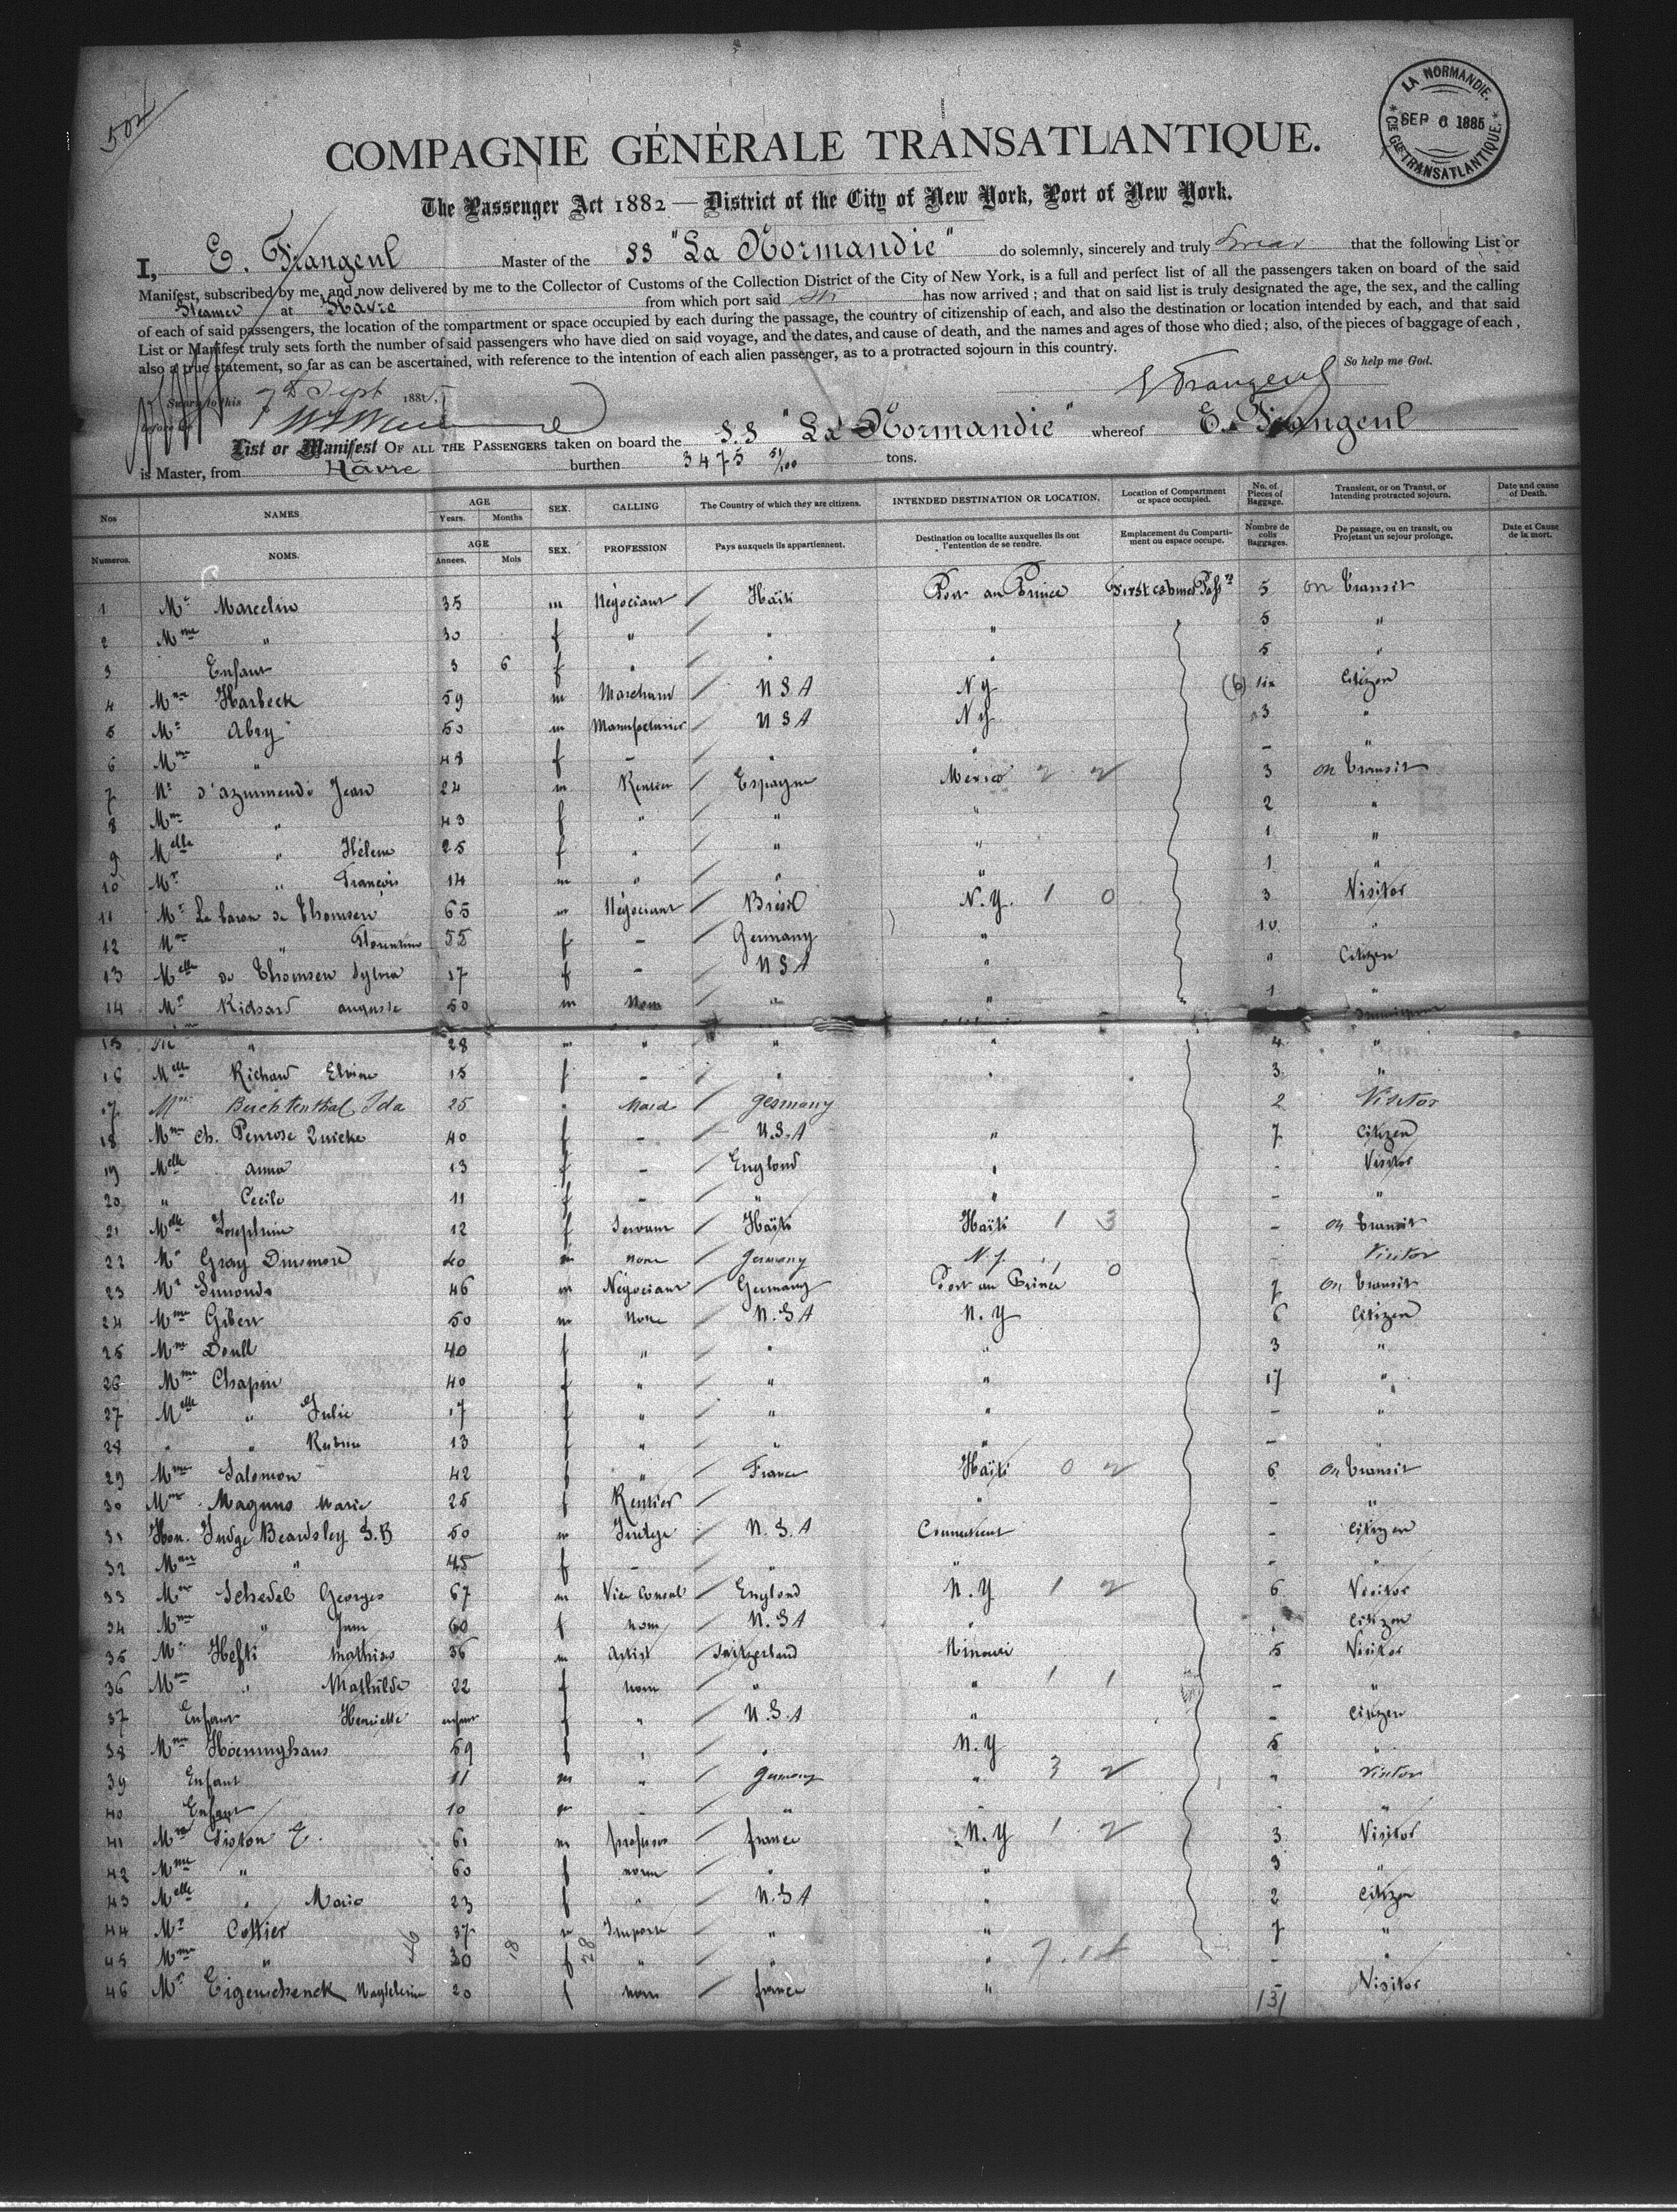 502
LA NORMANDIE.
SEP 6 1885
* CIE GLE TRANSATLANTIQUE. *
COMPAGNIE GÉNÉRALE TRANSATLANTIQUE.
The Passenger Act 1882 — District of the City of New York, Port of New York.
I, E. Frangeul Master of the SS "La Normandie" do solemnly, sincerely and truly swear that the following List or
Manifest, subscribed by me, and now delivered by me to the Collector of Customs of the Collection District of the City of New York, is a full and perfect list of all the passengers taken on board of the said
Steamer at Hâvre from which port said has now arrived; and that on said list is truly designated the age, the sex, and the calling
of each of said passengers, the location of the compartment or space occupied by each during the passage, the country of citizenship of each, and also the destination or location intended by each, and that said
List or Manifest truly sets forth the number of said passengers who have died on said voyage, and the dates, and cause of death, and the names and ages of those who died; also, of the pieces of baggage of each,
also a true statement, so far as can be ascertained, with reference to the intention of each alien passenger, as to a protracted sojourn in this country.
So help me God.
Sworn to this 7th Sept 1885
E Frangeul
before me
List or Manifest OF ALL THE PASSENGERS taken on board the S.S "La Normandie" whereof E. Frangeul
is Master, from Hâvre burthen 3475 51/100 tons.
Nos NAMES AGE Years. Months SEX. CALLING The Country of which they are citizens. INTENDED DESTINATION OR LOCATION. Location of Compartment or space occupied. No. of Pieces of Baggage. Transient, or on Transit, or Intending protracted sojourn. Date and cause of Death.
Numeros. NOMS. AGE Annees. Mois SEX. PROFESSION Pays auxquels ils appartiennent. Destination ou localite auxquelles ils ont l'entention de se rendre. Emplacement du Compartiment ou espace occupe. Nombre de colis Baggages. De passage, ou en transit, ou Projetant un sejour prolonge. Date et Cause de la mort.
1 Mr Marcelin 35 m Négociant Haïti Port au Prince First cabine 5 on Transit
2 Mme " 30 f " " " 5 "
3 Enfant 3 6 f " " " 5 "
4 Mme Harbeck 59 m Marchand U S A N Y (6) six Citizen
5 Mr Abry 50 m Manufacturier U S A N Y 3 "
6 Mme " 48 f - " " - "
7 Mr d'Azurmendi Jean 24 m Rentier Espagne Mexico 2 2 3 on Transit
8 Mme " 43 f " " " 2 "
9 Melle " Hélène 25 f " " " 1 "
10 Mr " François 14 m " " " 1 "
11 Mr Le baron de Thomsen 65 m Négociant Brésil N.Y. 1 0 3 Visitor
12 Mme " Florentine 55 f - Germany " 10 "
13 Melle de Thomsen Sylvia 17 f - U S A " " Citizen
14 Mr Richard auguste 50 m None " " 1 "
15 " 28 " " " 4 "
16 Melle Richard Elvine 15 f - " " 3 "
17 Mme Berchtenthal Ida 25 " Maid Germany 2 Visitor
18 Mme Ch. Penrose Quicke 40 f - U.S.A " 7 Citizen
19 Melle anna 13 f - England " - Visitor
20 " Cecile 11 f - " " - "
21 Melle Josephine 12 f Servant Haïti Haïti 1 3 - on Transit
22 Mr Gray Dinsmore 40 m none Germany N.Y. - Visitor
23 Mr Simonds 46 m Négociant Germany Port au Prince 0 7 on Transit
24 Mme Gibert 50 m None U.S.A N.Y 6 Citizen
25 Mme Doull 40 f " " " 3 "
26 Mme Chapin 40 f " " " 17 "
27 Melle " Julie 17 f " " " - "
28 " " 13 f " " " - "
29 Mme Salomon 42 f " France Haïti 0 2 6 on Transit
30 Mme Magnus Marie 25 f Rentier " - "
31 Hon. Judge Beardsley S.B 50 m Judge U.S.A Connecticut - Citizen
32 Mme " 45 f - " " - "
33 Mr Schedel Georges 67 m Vice Consul England N.Y 1 2 6 Visitor
34 Mme " Jane 60 f none U.S.A " Citizen
35 Mr Hefti Mathias 36 m Artist Switzerland Missouri 5 Visitor
36 Mme " Mathilde 22 f none " " 1 1 - "
37 Enfant Henriette enfant f " U.S.A " - Citizen
38 Mme Hoeninghaus 59 f " " N.Y 5 "
39 Enfant 11 m " Germany " 3 2 " Visitor
40 Enfant 10 m - " " "
41 Mr Piston E. 61 m professor france N.Y 1 2 3 Visitor
42 Mme " 60 f none " " 3 "
43 Melle " Marie 23 f " U.S.A " 2 Citizen
44 Mr Collier 37 m Import " " 7 "
45 Mme " 46 30 18 f 28 " " " - "
46 Mr Eigenschenck Magdeleine 20 f none france " - Visitor
131